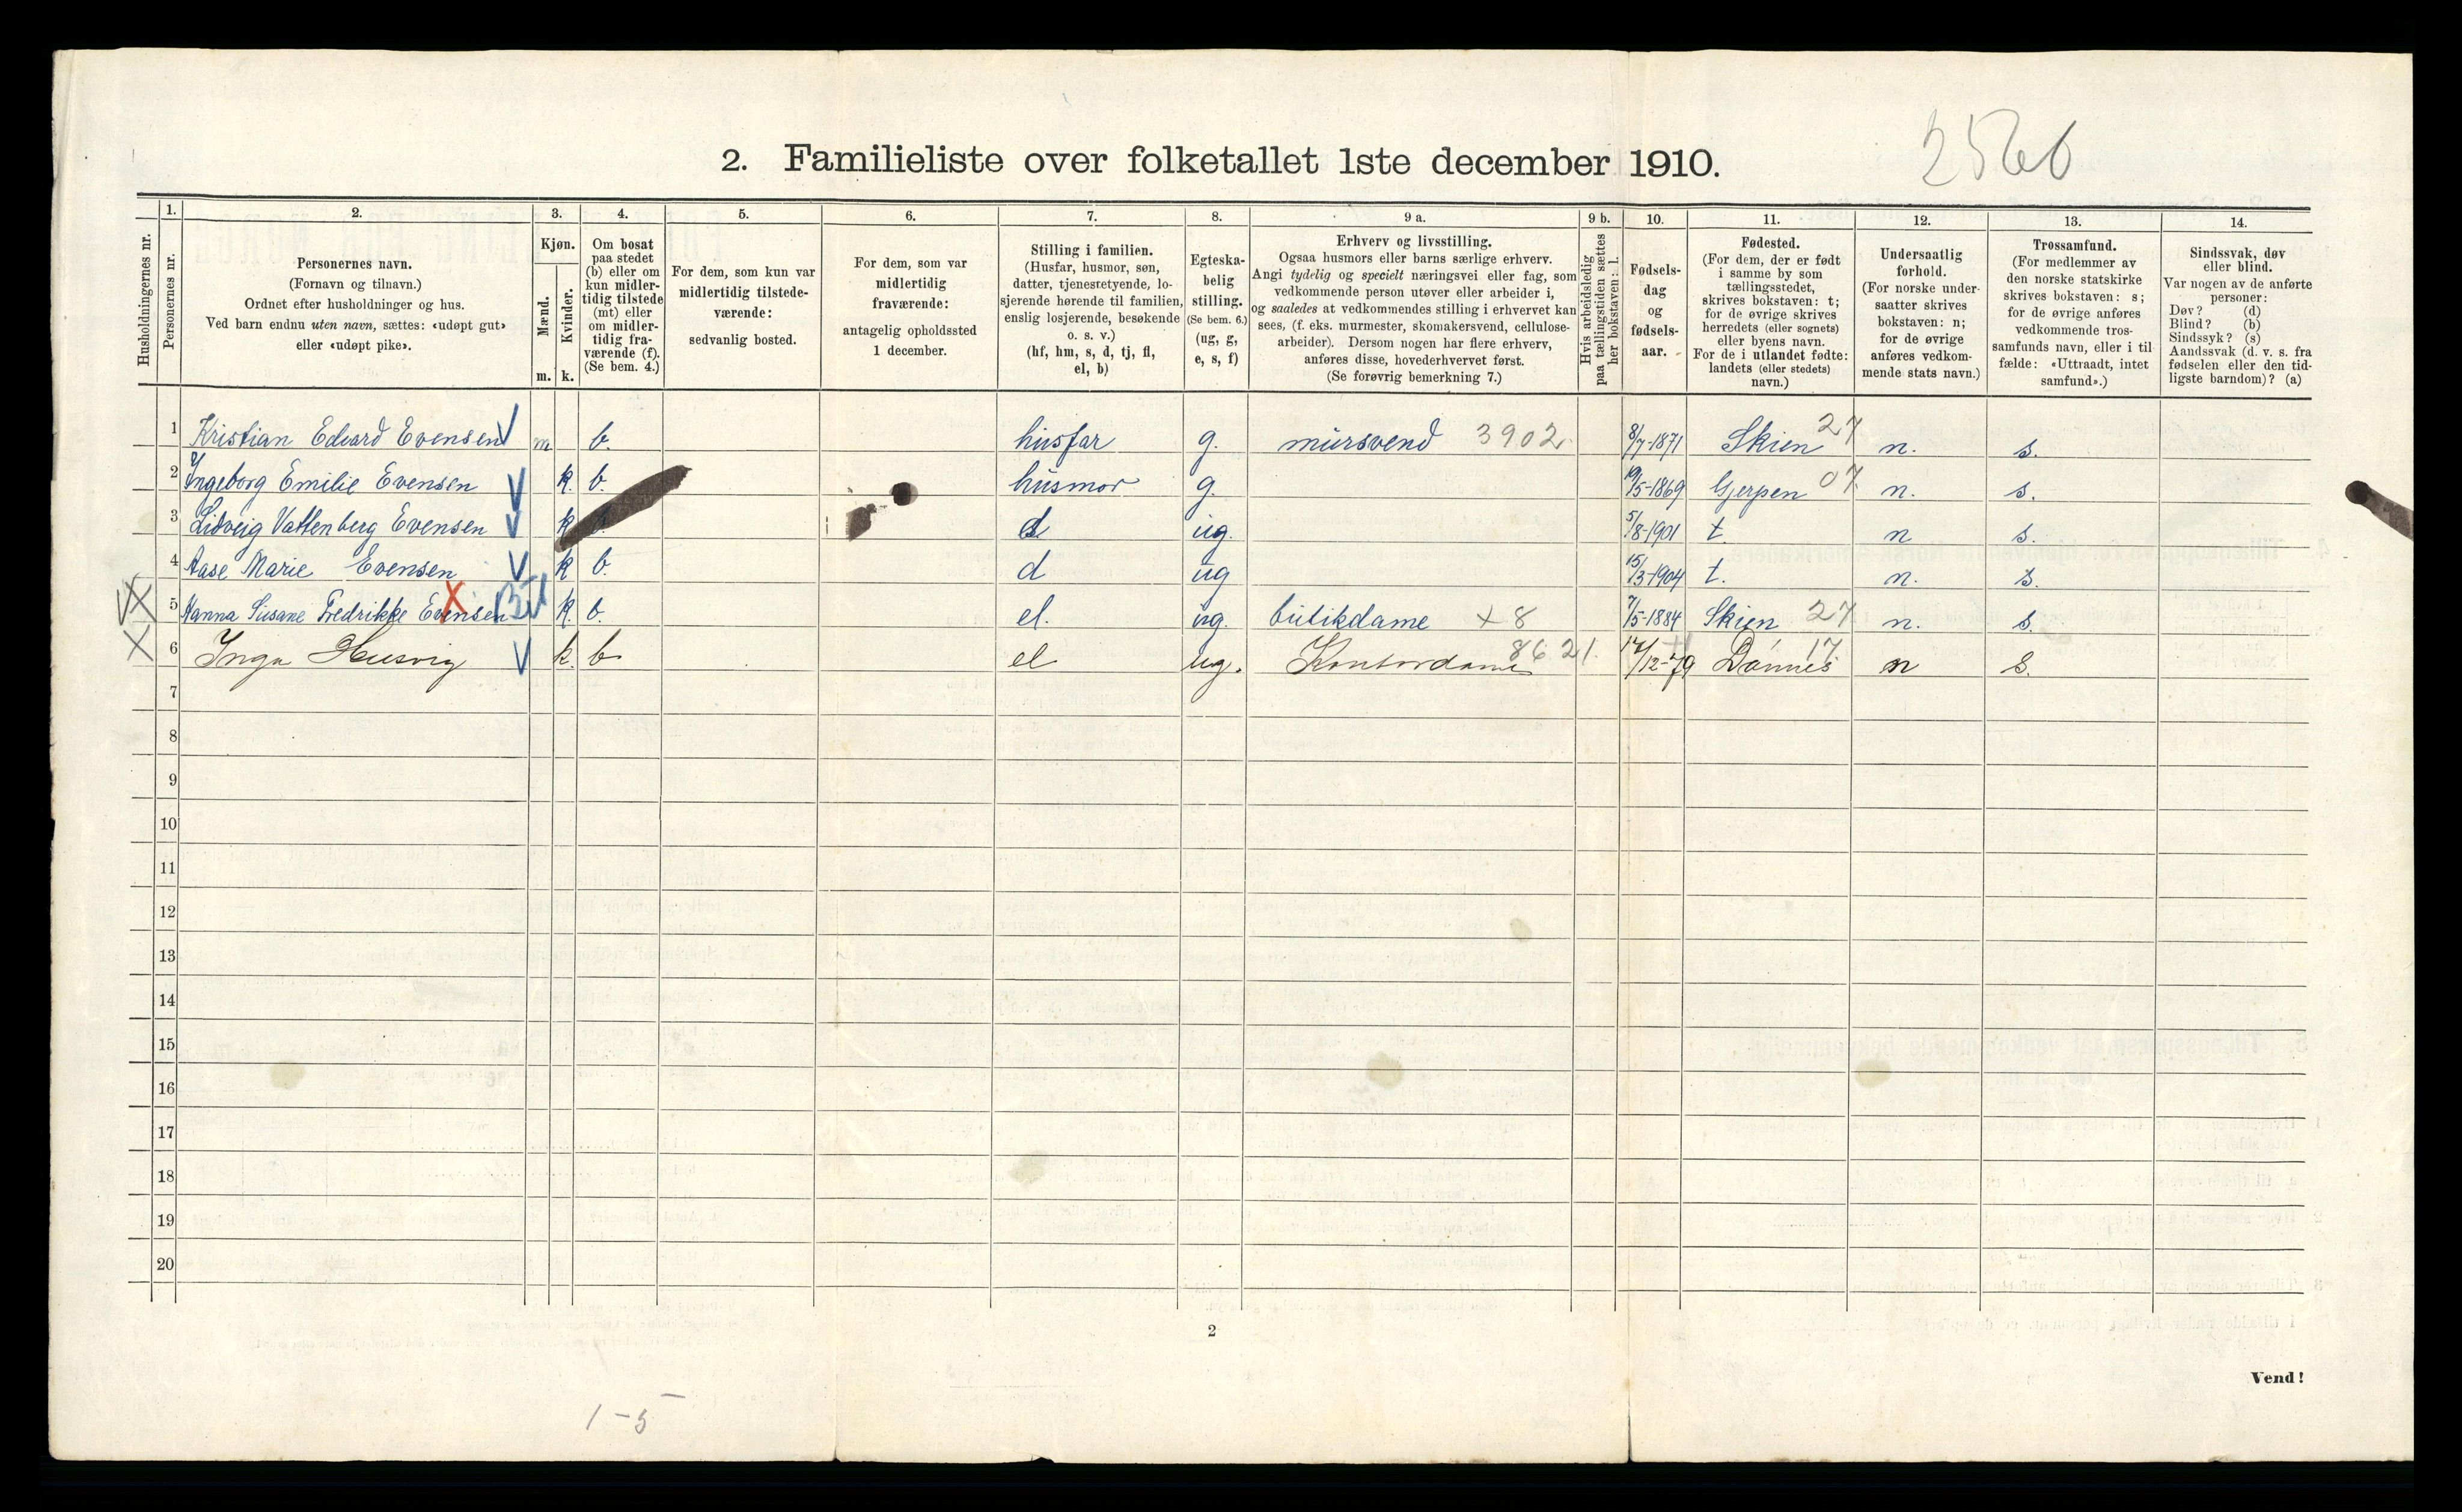 2560
2. Familieliste over folketallet 1ste december 1910.
Husholdningernes nr.
1.
Personernes nr.
2.
Personernes navn.
(Fornavn og tilnavn.)
Ordnet efter husholdninger og hus.
Ved barn endnu uten navn, sættes: «udøpt gut»
eller «udøpt pike».
3.
Kjøn.
Mænd.
Kvinder.
m. k.
4.
Om bosat
paa stedet
(b) eller om
kun midler-
tidig tilstede
(mt) eller
om midler-
tidig fra-
værende (f).
(Se bem. 4.)
5.
For dem, som kun var
midlertidig tilstede-
værende:
sedvanlig bosted.
6.
For dem, som var
midlertidig
fraværende:
antagelig opholdssted
1 december.
7.
Stilling i familien.
(Husfar, husmor, søn,
datter, tjenestetyende, lo-
sjerende hørende til familien,
enslig losjerende, besøkende
o. s. v.)
(hf, hm, s, d, tj, fl,
el, b)
8.
Egteska-
belig
stilling.
(Se bem. 6.)
(ug, g,
e, s, f)
9 a.
Erhverv og livsstilling.
Ogsaa husmors eller barns særlige erhverv.
Angi tydelig og specielt næringsvei eller fag, som
vedkommende person utøver eller arbeider i,
og saaledes at vedkommendes stilling i erhvervet kan
sees, (f. eks. murmester, skomakersvend, cellulose-
arbeider). Dersom nogen har flere erhverv,
anføres disse, hovederhvervet først.
(Se forøvrig bemerkning 7.)
9 b.
Hvis arbeidsledig
paa tællingstiden sættes
her bokstaven: l.
10.
Fødsels-
dag
og
fødsels-
aar.
11.
Fødested.
(For dem, der er født
i samme by som
tællingsstedet,
skrives bokstaven: t;
for de øvrige skrives
herredets (eller sognets)
eller byens navn.
For de i utlandet fødte:
landets (eller stedets)
navn.)
12.
Undersaatlig
forhold.
(For norske under-
saatter skrives
bokstaven: n;
for de øvrige
anføres vedkom-
mende stats navn.)
13.
Trossamfund.
(For medlemmer av
den norske statskirke
skrives bokstaven: s;
for de øvrige anføres
vedkommende tros-
samfunds navn, eller i til-
fælde: «Uttraadt, intet
samfund».)
14.
Sindssvak, døv
eller blind.
Var nogen av de anførte
personer:
Døv? (d)
Blind? (b)
Sindssyk? (s)
Aandssvak (d. v. s. fra
fødselen eller den tid-
ligste barndom)? (a)
1 Kristian Edvard Evensen m. b. husfar g. mursvend 3902 8/7-1871 Skien 27 n. s.
2 Ingeborg Emilie Evensen k. b. husmor g. 19/5-1869 Gjerpen 07 n. s.
3 Lidveig Vattenberg Evensen k b. d ug. 5/8-1901 t. n s.
4 Aase Marie Evensen k b. d ug 15/3-1904 t. n. s.
5 Hanna Susane Fredrikke Evensen k. b. el. ug. butikdame x8 7/5-1884 Skien 27 n. s.
6 Inga Husvig k. b el ug. Kontordame 8621. 17/12-79 Dønnes 17 n s.
7
8
9
10
11
12
13
14
15
16
17
18
19
20
2
Vend!
1-5